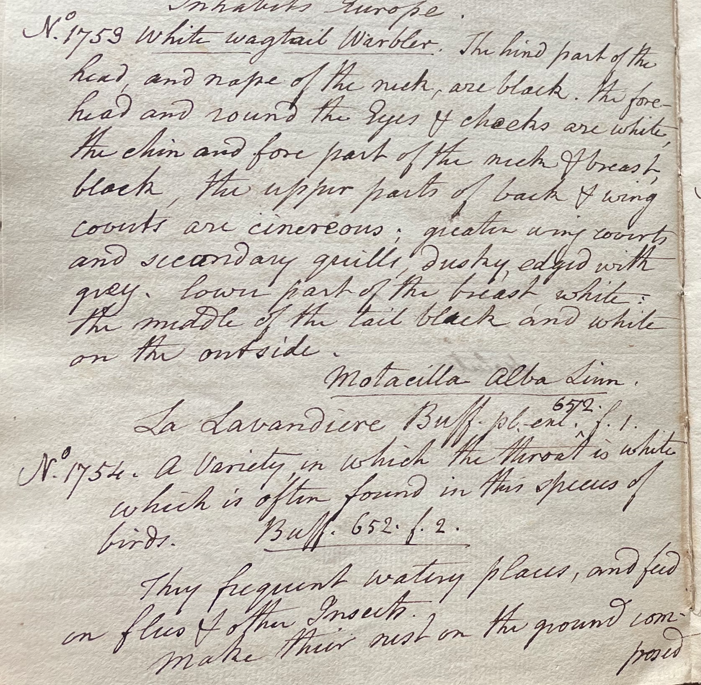 Inhabits Europe.
No. 1753 White wagtail Warbler. The hind part of the
head, and nape of the neck, are black. the fore-
head and round the Eyes & cheeks are white,
the chin and fore part of the neck & breast,
black, the upper parts of back & wing
coverts are cinereous; greater wing coverts
and secondary quills, dusky, edged with
grey. lower part of the breast white:
the middle of the tail black and white
on the outside.
Motacilla Alba Linn.
La Lavandiere Buff. pl. enl. 652. f. 1.
No. 1754. A Variety, in which the throat is white
which is often found in this species of
birds. Buff. 652. f. 2.
They frequent watery places, and feed
on flies & other Insects.
make their nest on the ground com-
posed